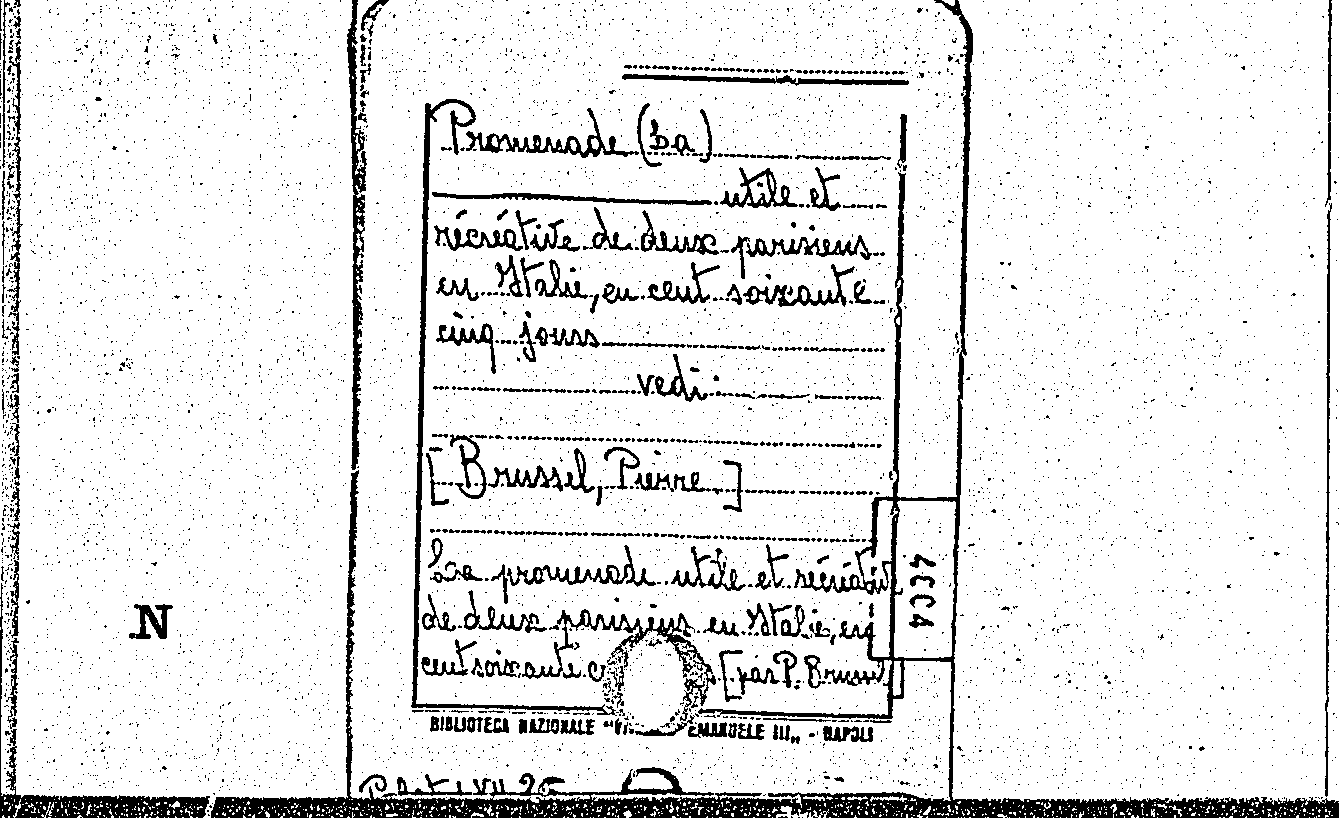 Promenade (La)
utile et
récréative de deux parisiens
en Italie, en cent soixante
cinq jours
vedi:
[Brussel, Pierre.]
La promenade utile et récréative
de deux parisiens en Italie, en
cent soixante c [par P. Brussel]
N
BIBLIOTECA NAZIONALE "VI EMANUELE III„ - NAPOLI